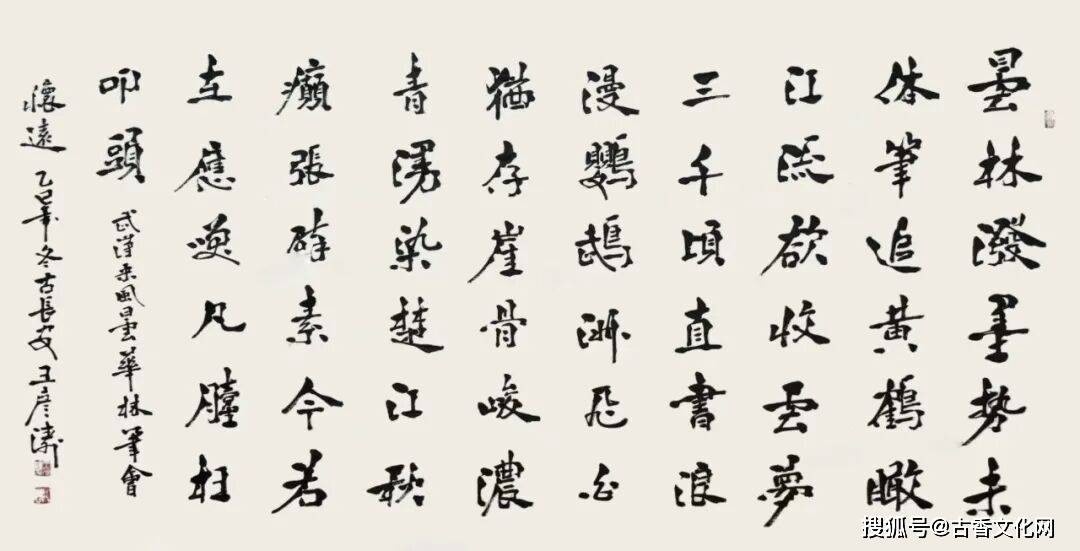 曇林潑墨勢未
休筆追黃鶴瞰
江流欲收雲夢
三千頃直書浪
漫鸚鵡洲飛白
猶存崖骨峻濃
青湧染楚江秋
癲張醉素今若
在應凡枉
叩頭
武漢采風曇華林筆會
懷遠 乙巳年冬古長安王彥濤
搜狐号@古香文化网